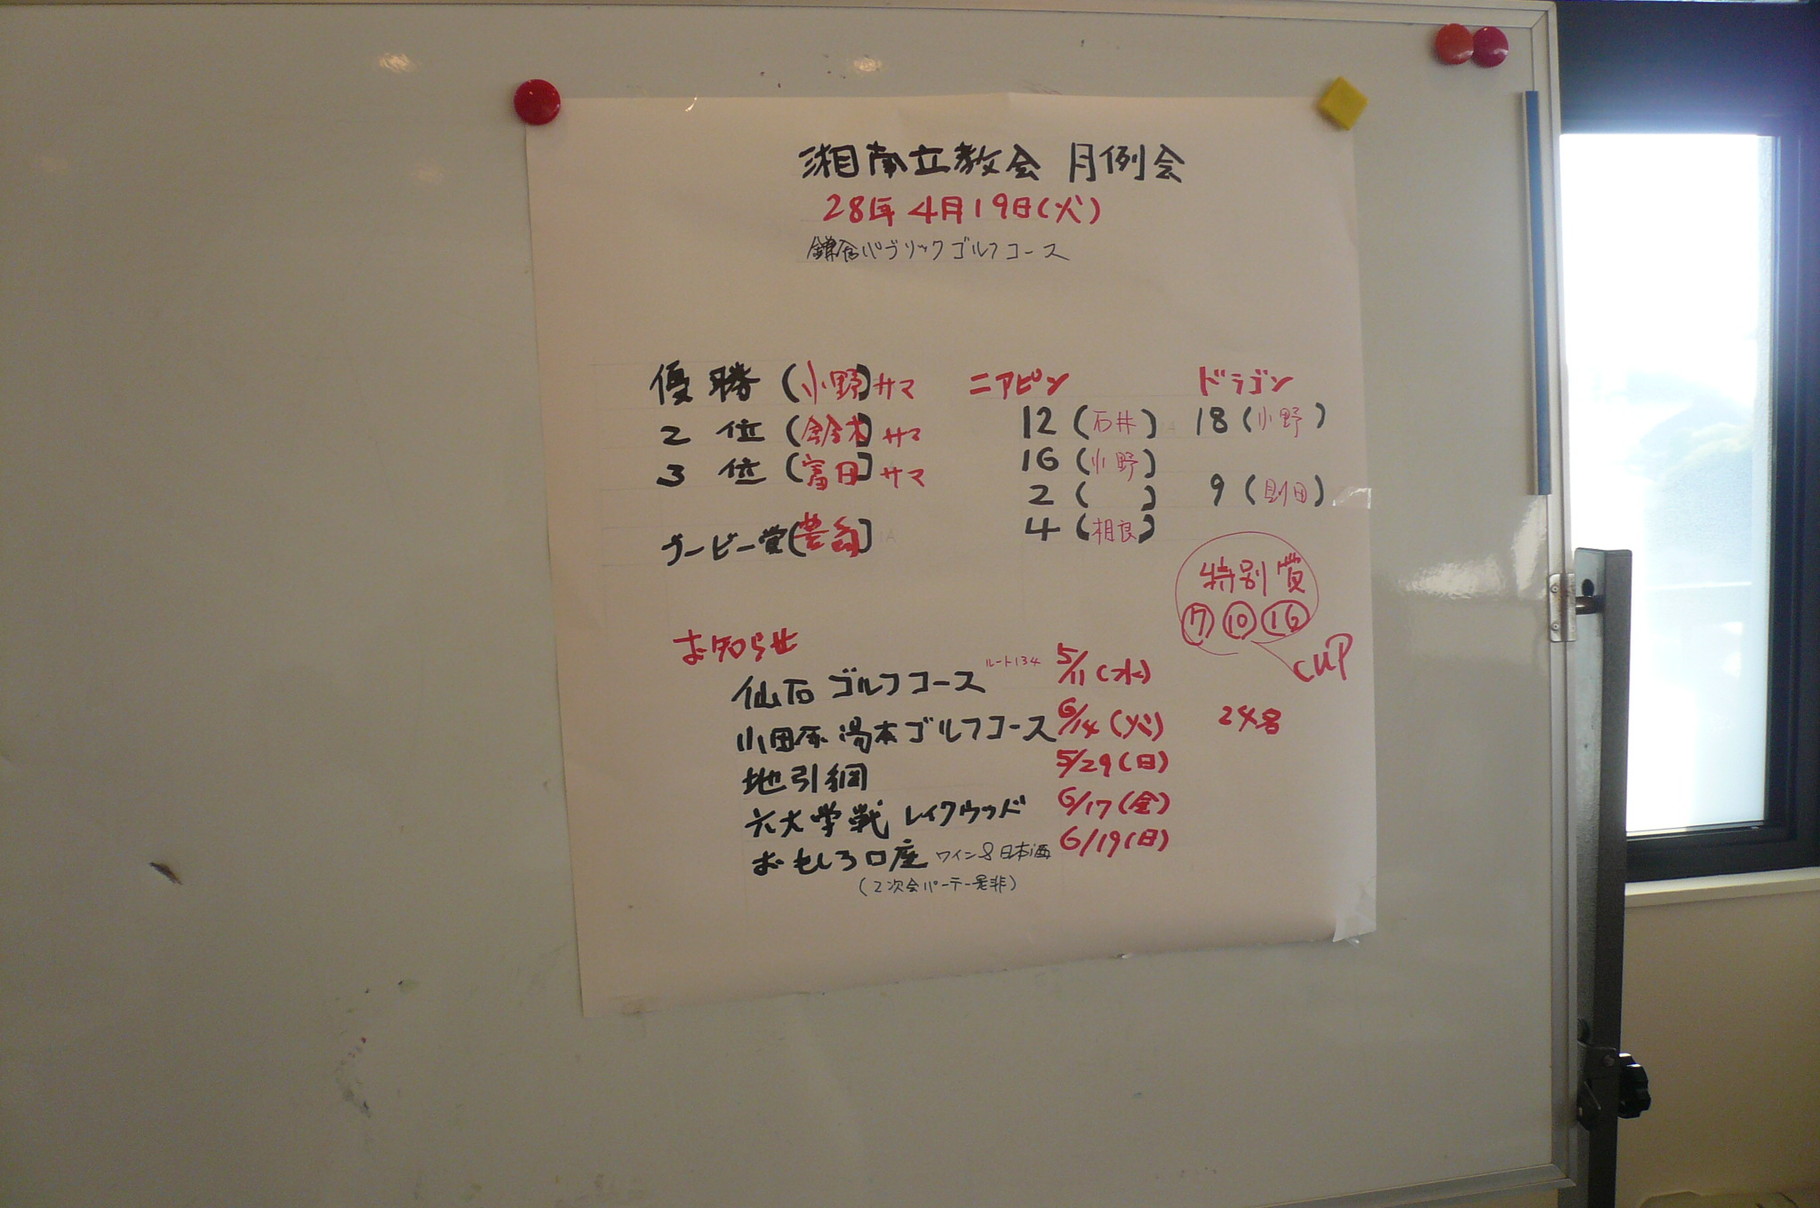 湘南立教会 月例会
28年4月19日(火)
鎌倉パブリックゴルフコース
優勝(小野)サマ
2位(鈴木)サマ
3位(富田)サマ
ブービー賞
ニアピン
12(石井)
16(小野)
2( )
4(相良)
ドラゴン
18(小野)
9(則田)
特別賞
⑦⑩⑯
CUP
お知らせ
仙石ゴルフコース ルート134 5/11(水)
小田原湯本ゴルフコース 6/14(火) 24名
地引網 5/29(日)
六大学戦 レイクウッド 6/17(金)
おもしろ口座 ワイン&日本酒 6/19(日)
(2次会パーテー是非)